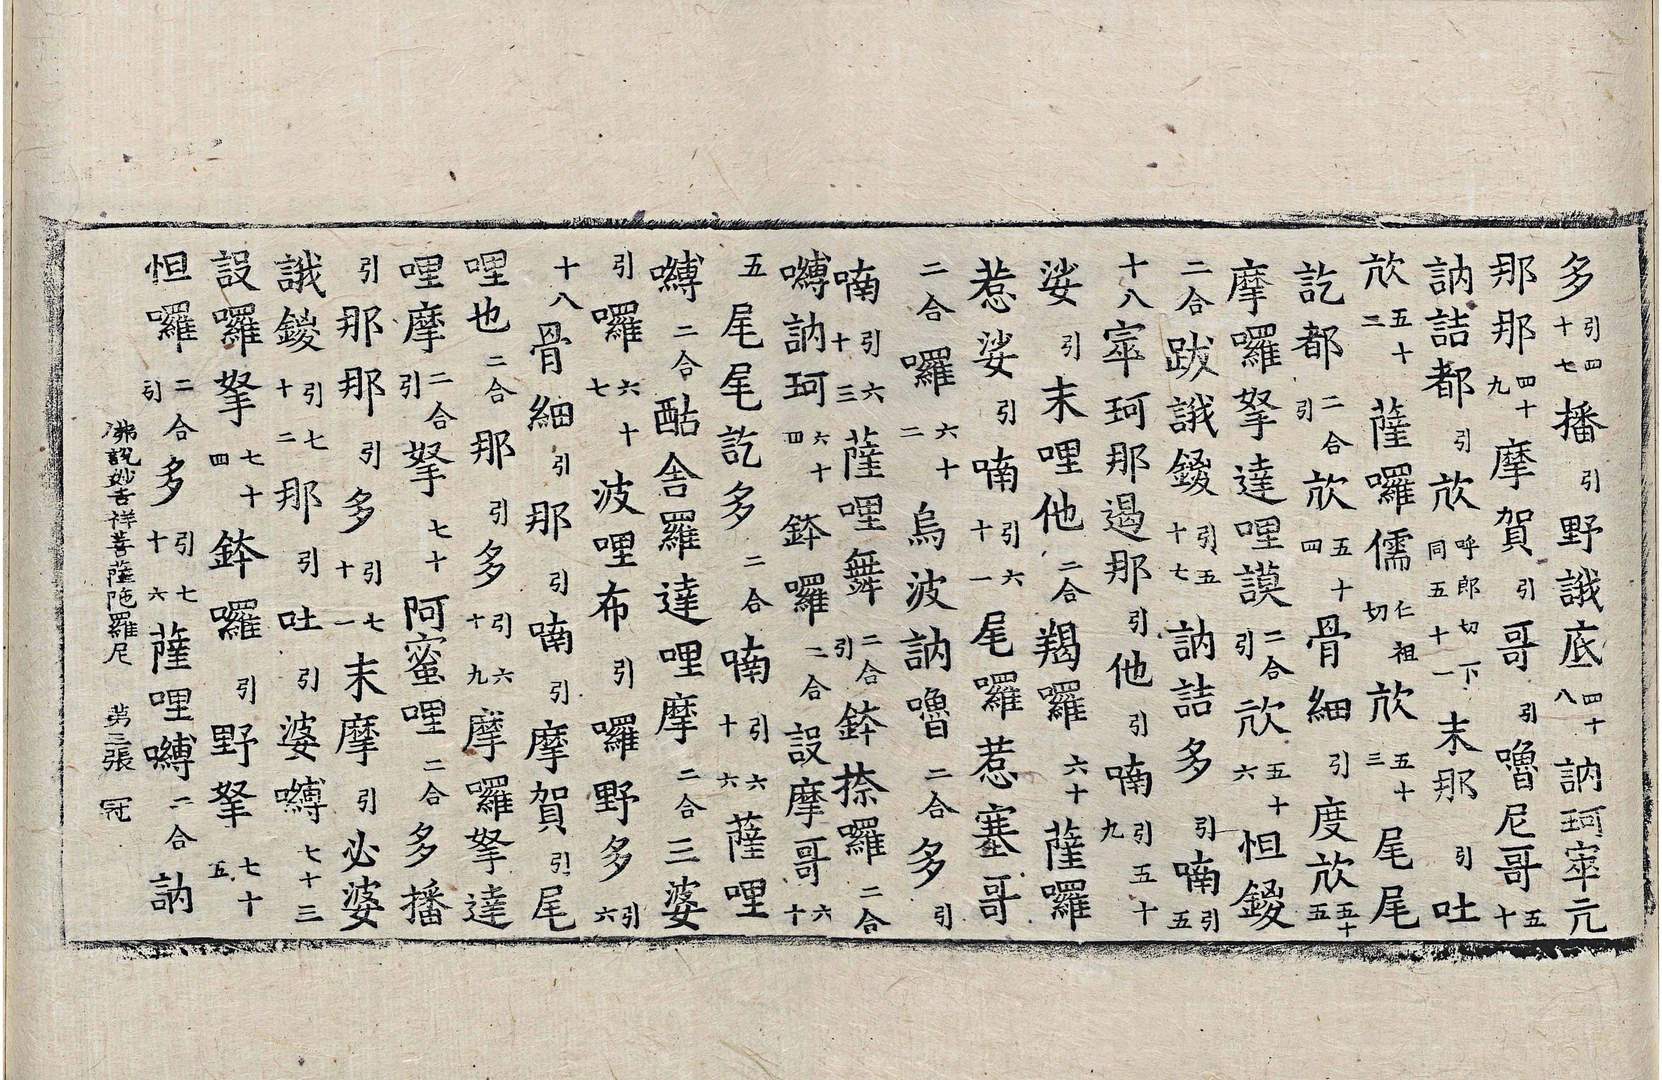 多引四十七播引野誐底四十八訥珂寧亢
那那四十九摩賀引哥引嚕尼哥五十
訥詰都引㰠呼郎切下同五十一末那引吐
㰠五十二薩囉儒仁祖切㰠五十三尾尾
訖都二合引㰠五十四骨細引度㰠五十五
摩囉拏達哩謨二合引㰠五十六怛鍐
二合跋誐鍐引五十七訥詰多引喃引五
十八寧珂那遏那引他引喃引五十九
娑引末哩他二合羯囉六十薩囉
惹娑引喃引六十一尾囉惹塞哥
二合囉六十二烏波訥嚕二合多引
喃引六十三薩哩舞二合引鉢捺囉二合
嚩訥珂六十四鉢囉二合設摩哥六十
五尾尾訖多二合喃引六十六薩哩
嚩二合酤舍羅達哩摩二合三婆
引囉六十七波哩布引囉野多引六
十八骨細引那引喃引摩賀引尾
哩也二合那引多引六十九摩囉拏達
哩摩二合引拏七十阿蜜哩二合多播
引那那引多引七十一末摩引必婆
誐鍐引七十二那引吐引婆嚩七十三
設囉拏七十四鉢囉引野拏七十五
怛囉二合引多引七十六薩哩嚩二合訥
佛說妙吉祥菩薩陁羅尼　第三張　冠